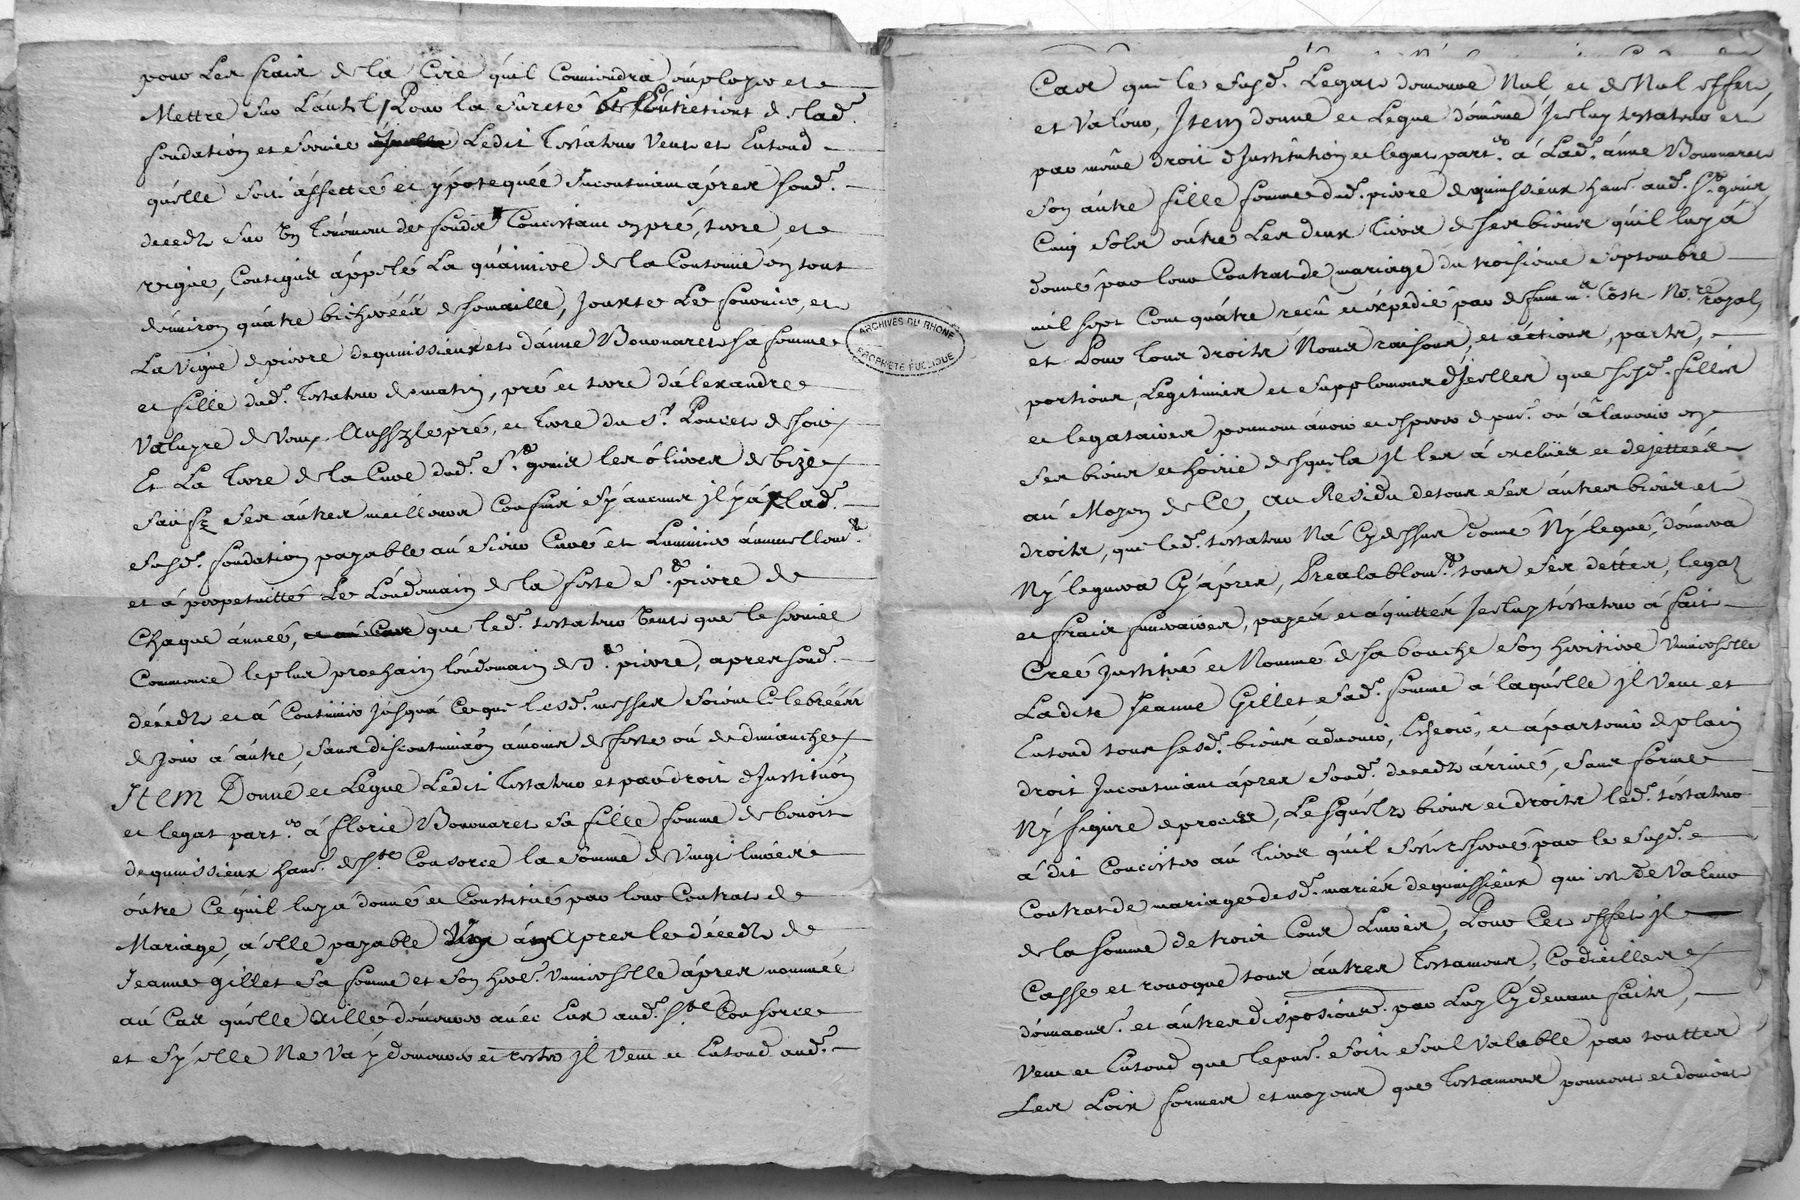 pour Les fraix de la Cire qu'il Conviendra employer et
Mettre sur L'autel / Pour la sûreté Et Entretient de Lad.e
fondation et service Ledit Testateur Veut et Entend
qu'elle soit affettée et ypotequée incontinant apres sond.
decedz sur un Tenement de fondz Concistant en pré, terre, et
vigne, Contigus appélé La de la en tout
d'environ quatre bicherées de semaille, Jouxte Le et
La vigne de pierre dequinissieux et d'anne Bononaret sa femme
et fille dud. Testateur de matin, pré et terre d'alexandre
Valuyre de Vent, le pré, et Terre du S.r Poncet de soir
Et La Terre de la Cure dud. S.t genis les ólieres de bize
sauf ses autres meilleurs Confins sy aucuns il y a lad.
susd. fondation payable au sieur Curé et Luminier annuellem.t
et à perpetuitté Le Lendemain de la feste S.t pierre de
Chaque année, que led. testateur veut que le service
Commence le plus prochain lendemain de S.t pierre, apres sond.
décedz et à Continuer jusqu'à Ce que lesd. messes soient Celebrées
de jour à autre, sans discontinuaon àmoins de feste ou de dimanche
Item Donne et Legue Ledit Testateur et par droit d'Instituon
et legat part.er à florie Bononaret sa fille femme de benoit
dequinissieux hant. de S.te Consorce la somme de Vingt livres
óutre Ce qu'il luy a donné et Constitué par leur Contrat de
Mariage, à elle payable Un an apres le décedz de
Jeanne gillet sa femme et son her.e universelle apres nommée
au Cas qu'elle aille demeurer avéc Eux aud. S.te Consorce
et sy elle Ne va y demeurer et rester il veut et Entend aud.
Cas que le susd. Legat demeure Nul et de Nul effet
et Valeur, Item donne et Legue demême Jceluy testateur et
par même droit d'Institution et legat part.er à Lad. anne Bononaret
son autre fille femme dud. pierre dequinissieux hant. aud. S.t genis
Cinq sols outre Les deux Tiers de ses biens qu'il luy a
donné par leur Contrat de mariage du troisieme septembre
mil sept Cent quatre reçû et expedié par defunt m.e Coste No.re royal
et Pour Tous droits Noms raisons, et actions, parts,
portions, Legitimes et supplement d'Jcelles que sesd. filles
et legataires pourroient avoir et esperer de pnt. ou a Lavenir en
ses biens et hoirie desquels Jl les a exclües et dejettées
au Moyen de Ce, Au Residu de tous ses autres biens et
droits, que led. testateur Na Cy dessus donné Ny legué, donnera
Ny leguera Cy apres, Prealablem.t tous ses dettes, legaz
et fraix funeraires, payés et aquittés Jceluy testateur a fait
Creé Jnstitué et Nommé de sa bouche son heritiere Universelle
Ladite Jeanne Gillet sad. femme à laquelle Jl veut et
Entend tous sesd. biens advenir, Escheoir, et apartenir de plain
droit Jncontinant apres sond. decedz arrivé, sans forme
Ny figure de procès, Lesquels biens et droits led. testateur
à dit Concister au Tiers qu'il s'est reservé par le susd.
Contrat de mariage desd. mariés dequinissieux qui est de Valeur
de la somme de trois Cens Livres, Pour Cet effet il
Casse et revoque tous autres Testamens, Codicilles
et autres dispositions par Luy Cy devant faits,
veut et Entend que le pnt. soit seul Valable par toutter
Les Loix formes et moyens que Testamens peuvent et doivent
ARCHIVES DU RHONE
PROPRIÉTÉ PUBLIQUE